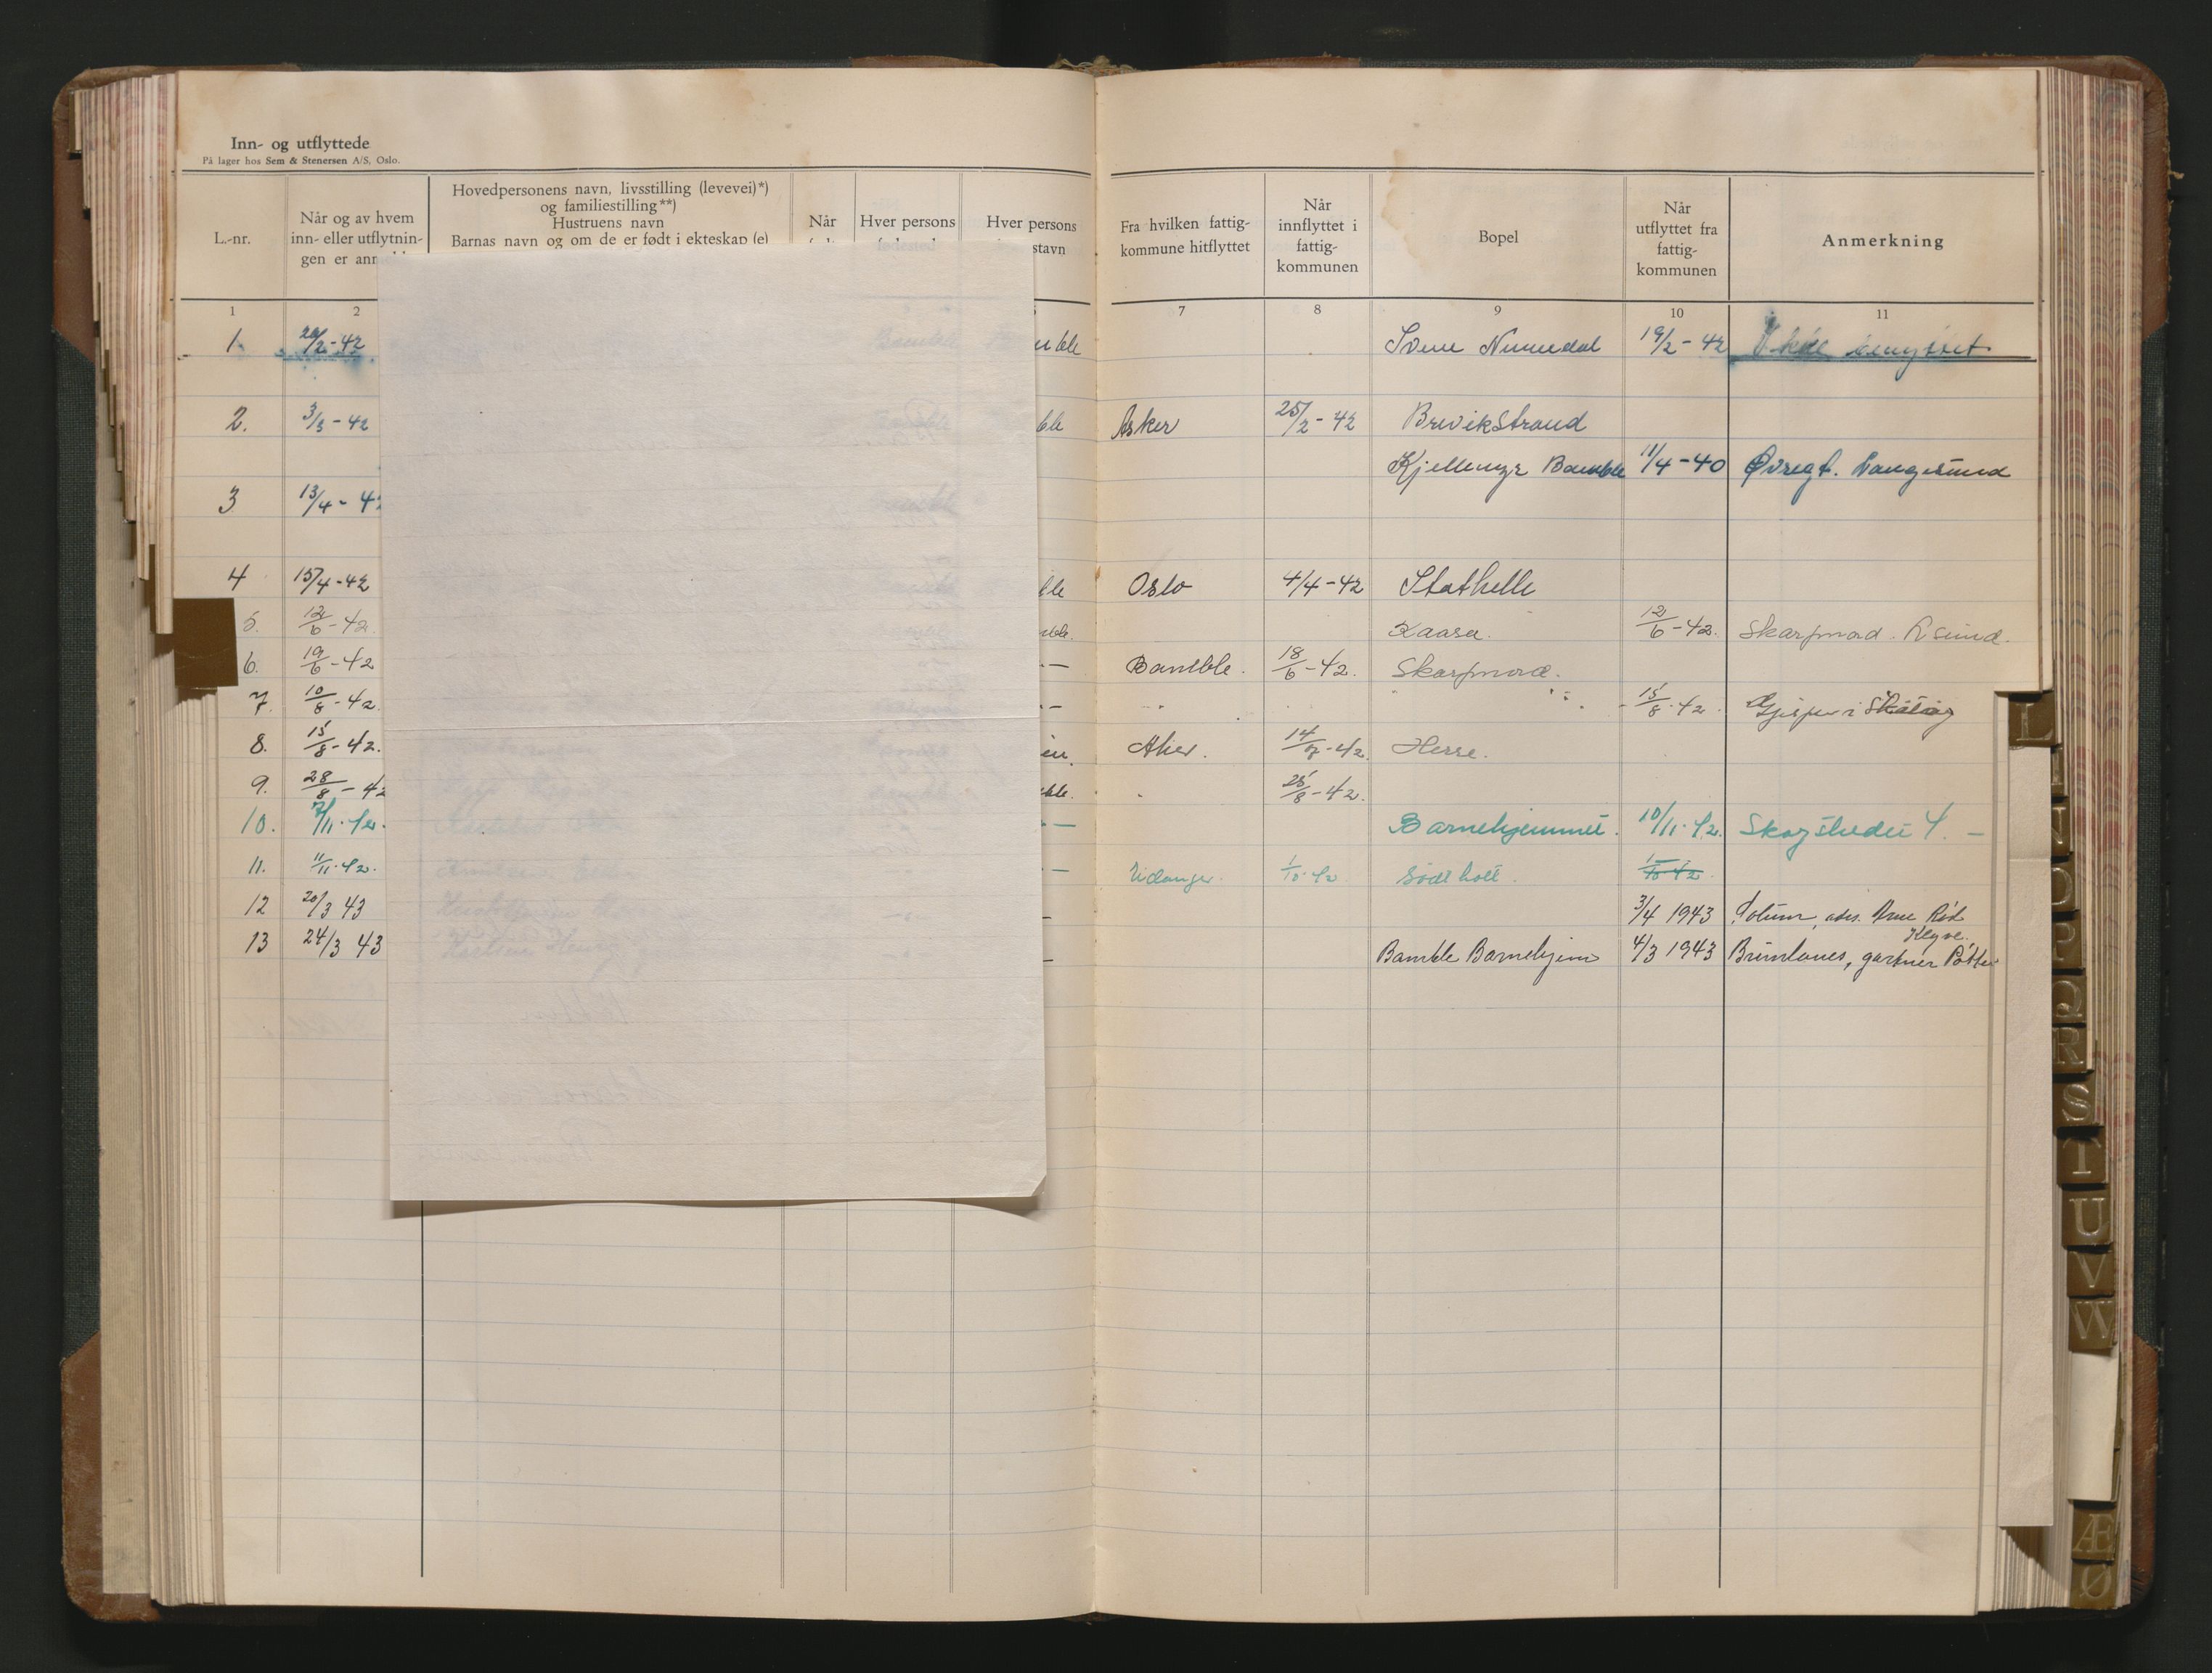 Inn- og utflyttede
På lager hos Sem & Stenersen A/S, Oslo.
L.-nr.
Når og av hvem
inn- eller utflytnin-
gen er
Hovedpersonens navn, livsstilling (levevei)*)
og familiestilling**)
Hustruens navn
Barnas navn og om de er født i ekteskap (e)
Når
Hver persons
Hver persons
stavn
Fra hvilken fattig-
kommune hitflyttet
Når
innflyttet i
fattig-
kommunen
Bopel
Når
utflyttet fra
fattig-
kommunen
Anmerkning
1 2 7 8 9 10 11
1. 20/2-42 19/2-42 Ikke benyttet
2. 3/3-42 Asker 25/2-42 Brevikstrand
Kjellemyr Bamble 11/4-40 Øvregt. Langesund
3 13/4-4
4 15/4-42 Oslo 4/4-42 Stathelle
5. 12/6-42. Kaasa. 12/6-42.
6. 19/6-42 Bamble. 18/6-42.
7. 10/8-42. 15/8-42.
8. 15/8-42. 14/7-42. Herre.
9. 28/8-42 25/8-42.
10. 7/11.42. Barnehjemmet. 10/11.42.
11. 11/11.42. Eidanger. 1/10.42 1/10.42.
12 20/3 43 3/4 1943 Solum, adr. Arne Rød
Klyve.
13 24/3 43 Bamble Barnehjem 4/3 1943 Brunlanes, gartner
L
N
O
P
Q
R
S
T
U
V
W
Æ
Ø